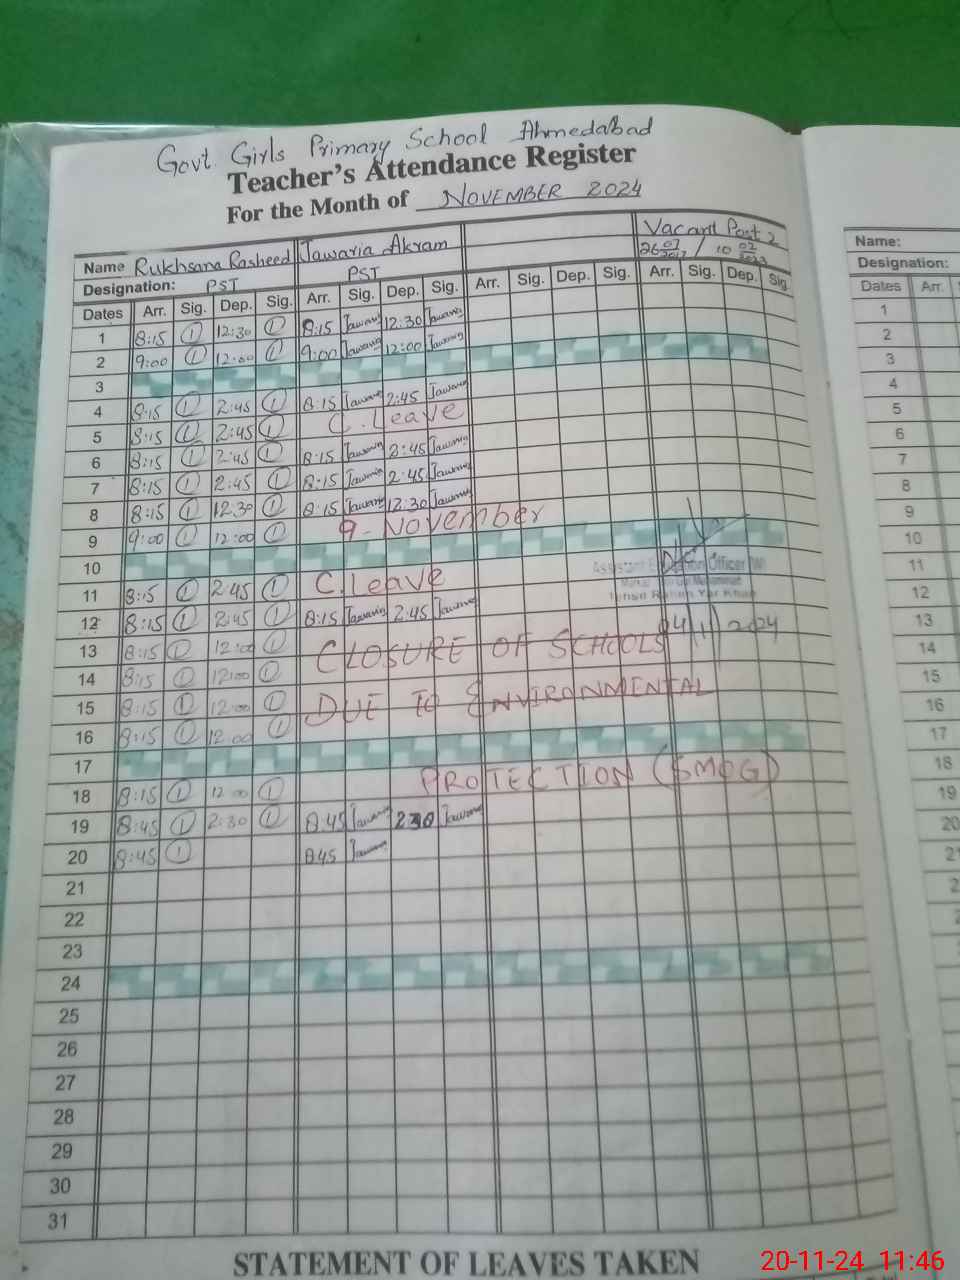 Govt Girls Primary School Ahmedabad
Teacher's Attendance Register
For the Month of NOVEMBER 2024
Name Rukhsana Rasheed Jawaria Akram Vacant Post 2
Designation: PST PST 26 07 2017 / 10 02
Dates Arr. Sig. Dep. Sig. Arr. Sig. Dep. Sig. Arr. Sig. Dep. Sig. Arr. Sig. Dep. Sig.
1 8:15 1 12:30 1 8:15 Jawaria 12:30 Jawaria
2 9:00 1 12:00 1 9:00 Jawaria 12:00 Jawaria
3
4 8:15 1 2:45 1 8:15 Jawaria 2:45 Jawaria
5 8:15 1 2:45 1 C. Leave
6 8:15 1 2:45 1 8:15 Jawaria 2:45 Jawaria
7 8:15 1 2:45 1 8:15 Jawaria 2:45 Jawaria
8 8:15 1 12:30 1 8:15 Jawaria 12:30 Jawaria
9 9:00 1 12:00 1 9-November
10
11 8:15 1 2:45 1 C. Leave
12 8:15 1 2:45 1 8:15 Jawaria 2:45 Jawaria
13 8:15 1 12:00 1 CLOSURE OF SCHOOLS
14 8:15 1 12:00 1
15 8:15 1 12:00 1 DUE TO ENVIRONMENTAL
16 8:15 1 12:00 1
17
18 8:15 1 12:00 1 PROTECTION (SMOG)
19 8:45 1 2:30 1 8:45 Jawaria 2:30 Jawaria
20 8:45 1 8:45 Jawaria
21
22
23
24
25
26
27
28
29
30
31
Assistant Education Officer
Tehsil Rahim Yar Khan
04/11/2024
STATEMENT OF LEAVES TAKEN
Name:
Designation:
Dates Arr.
1
2
3
4
5
6
7
8
9
10
11
12
13
14
15
16
17
18
19
20
20-11-24 11:46